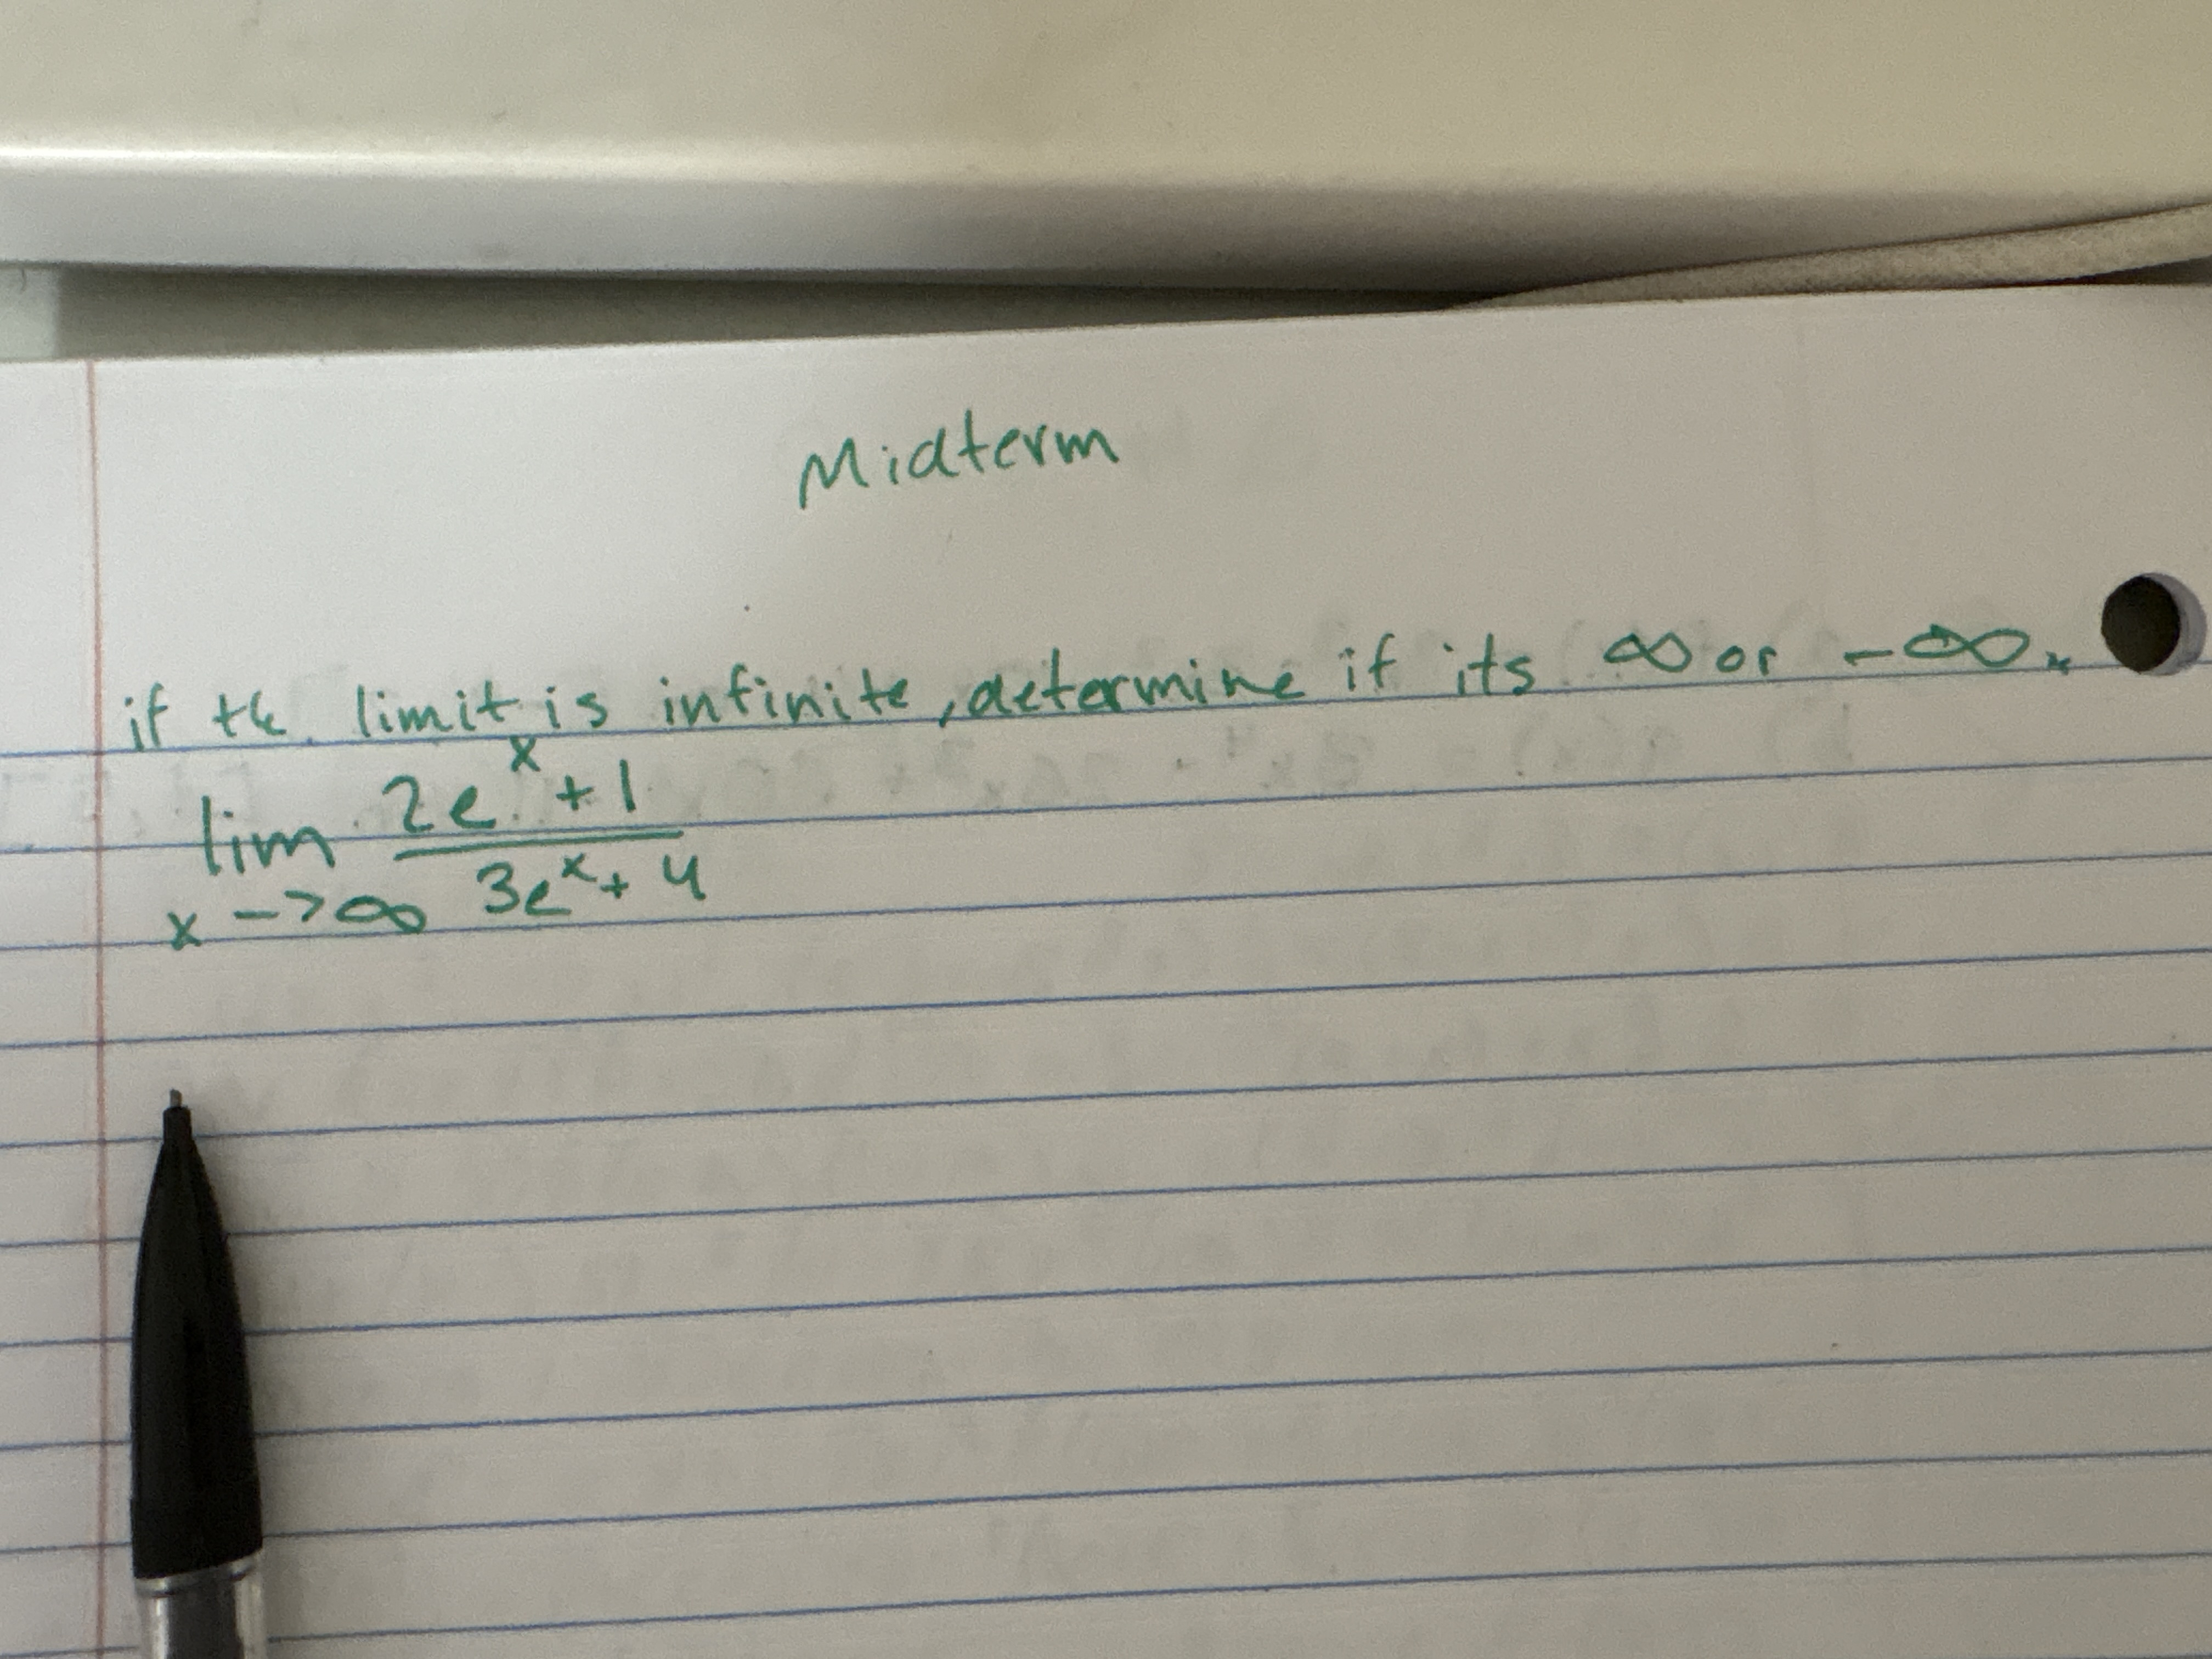 Midterm
if the limit is infinite, determine if its ∞ or -∞.
lim 2e^x + 1 / 3e^x + 4
x -> ∞